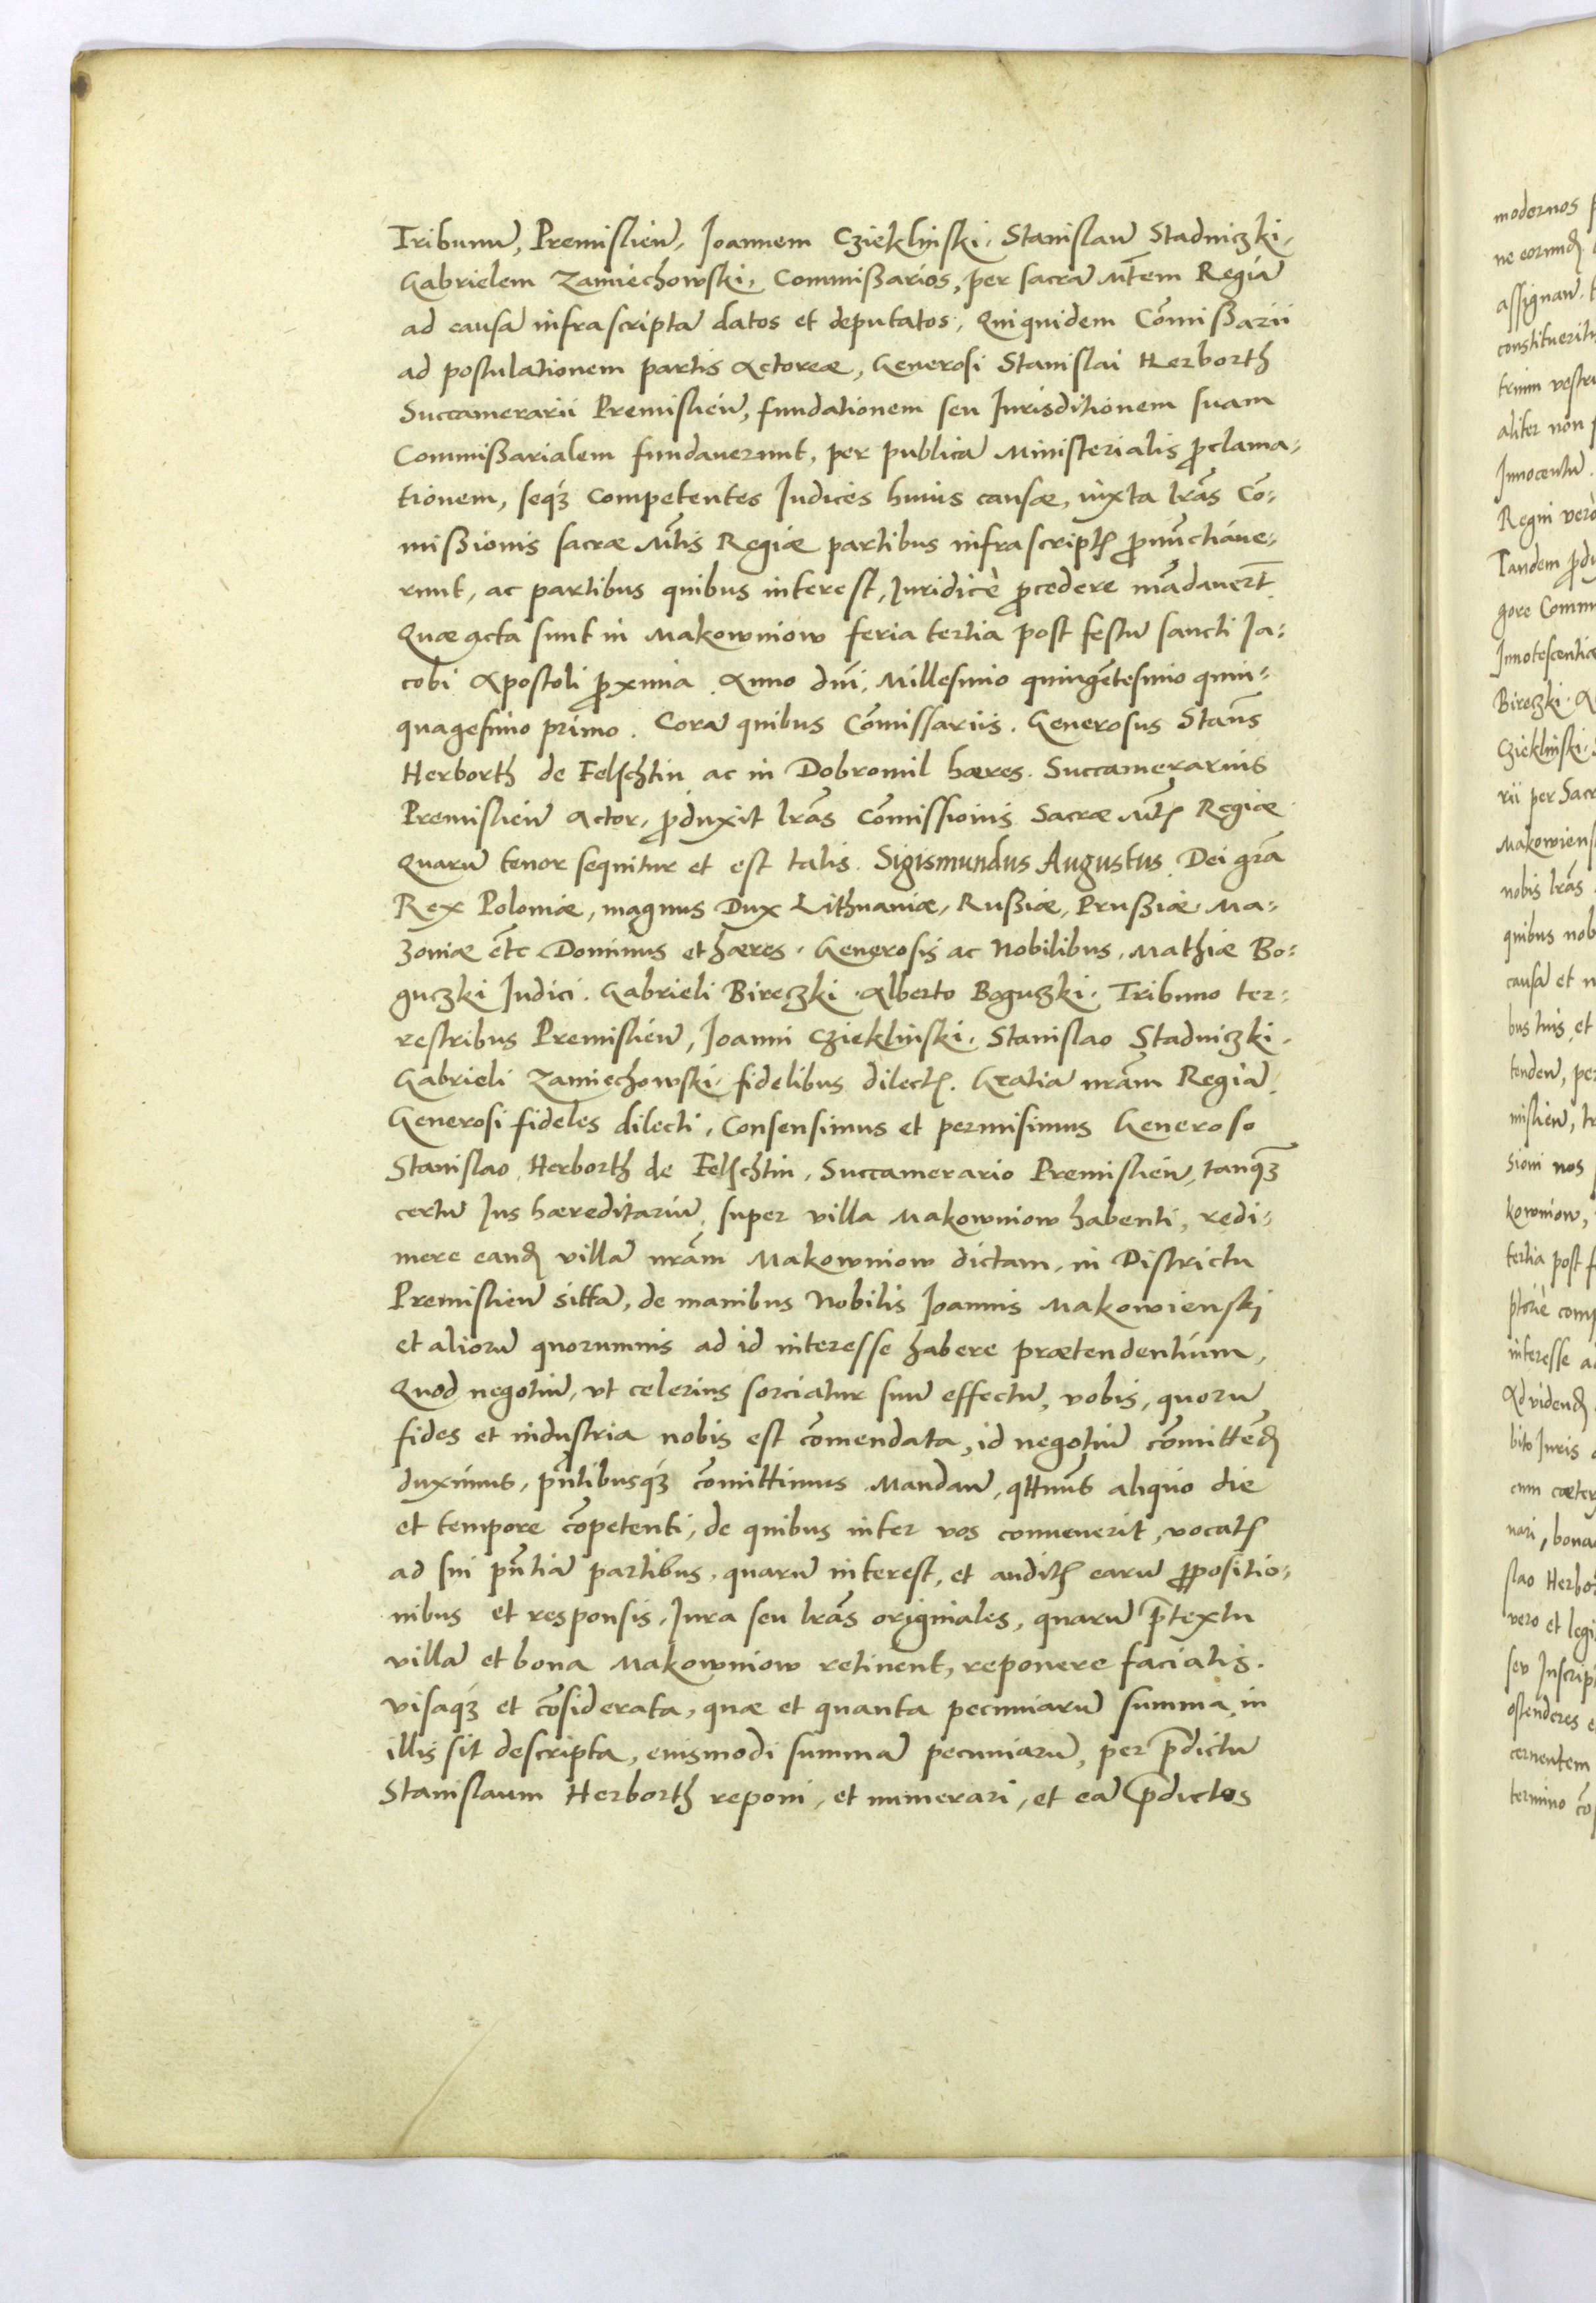 Tribunū, Premislieñ, Joannem Cziekliński, Stanislaū Stadniczki,
Gabrielem Zamiechowski, Commißarios, per sacrā Mtem Regiā
ad causā infrascriptā datos et deputatos, Quiquidem Cōmißarii
ad postulationem partis Actoreæ, Generosi Stanislai Herborth
Succamerarii Premislieñ, fundationem seu Jurisditionem suam
Commißarialem fundauerunt, per publicā Ministerialis p̄clama⸗
tionem, seqꝫ Competentes Judices huius causæ, iuxta lrās Cō⸗
mißionis sacræ Mtis Regiæ partibus infrascriptꝭ p̄nūctiaue⸗
runt, ac partibus quibus interest, Juridicè p̄cedere mādauert̄.
Quæ acta sunt in Makowniow feria tertia post festū sancti Ja⸗
cobi Apostoli p̄xima. Anno dnī, Millesimo quingētesimo quin⸗
quagesimo primo. Corā quibus Cōmissariis. Generosus Stan̄s
Herborth de Felschtin ac in Dobromil hæres. Succamerarius
Premislieñ Actor, p̄duxit lrās Cōmissionis Sacræ Mtꝭ Regiæ
Quarū tenor sequitur et est talis. Sigismundus Augustus. Dei grā
Rex Poloniæ, magnus Dux Lithuaniæ, Rußiæ, Prußiæ, Ma⸗
zoniæ etc̄. Dominus et hæres. Generosis ac Nobilibus, Mathiæ Bo⸗
guczki Judici. Gabrieli Bireczki. Alberto Boguczki. Tribuno ter⸗
restribus Premislieñ, Joanni Cziekliński, Stanislao Stadniczki.
Gabrieli Zamiechowski, fidelibus dilectꝭ. Gratiā nrām Regiā.
Generosi fideles dilecti, Consensimus et permisimus Generoso
Stanislao Herborth de Felschtin, Succamerario Premislieñ, tanqꝫ
certū Jus hæreditariū, super villa Makowniow habenti, redi⸗
mere eandꝭ villā nrām Makowniow dictam, in Districtu
Premislieñ sittā, de manibus Nobilis Joannis Makowienski
et aliorū quorumuis ad id interesse habere prætendentium,
Quod negotiū, vt celerius sorciatur suū effectū, vobis, quorū
fides et industria nobis est cōmendata, id negotiū cōmittēdꝭ
duximus, pn̄tibusqꝫ cōmittimus Mandañ, qttnūs aliquo die
et tempore cōpetenti, de quibus inter vos conuenerit, vocatꝭ
ad sui pn̄tiā partibus, quarū interest, et auditꝭ earū p̄positio⸗
nibus et responsis, Jura seu lrās originales, quarū p̄textu
villā et bona Makowniow retinent, reponere faciatis.
visaqꝫ et cōsiderata, quæ et quanta pecuniarū summa in
illis sit descripta, euismodi summā pecuniarū, per p̄dictū
Stanislaum Herborth reponi, et numerari, et eā p̄dictos
modernos
ne eorundꝭ
assignañ.
constituerit
trium vestr
aliter non
Innocentū.
Regni verò
Tandem p̄du
gore Comm
Innotescentiæ
Bireczki.
Cziekliński,
rii per Sacr
Makowiens
nobis lrās
quibus nob
causā et n
bus tuis, et
tendeñ, per
mislieñ, tr
sioni nos
kowniow,
tertia post f
ptoriè comp
interesse a
Ad videndꝭ
bito Juris
cum cæter
nari, bona
slao Herbo
vero et legi
seu Inscrip
ostenderes e
cernentem
termino cō